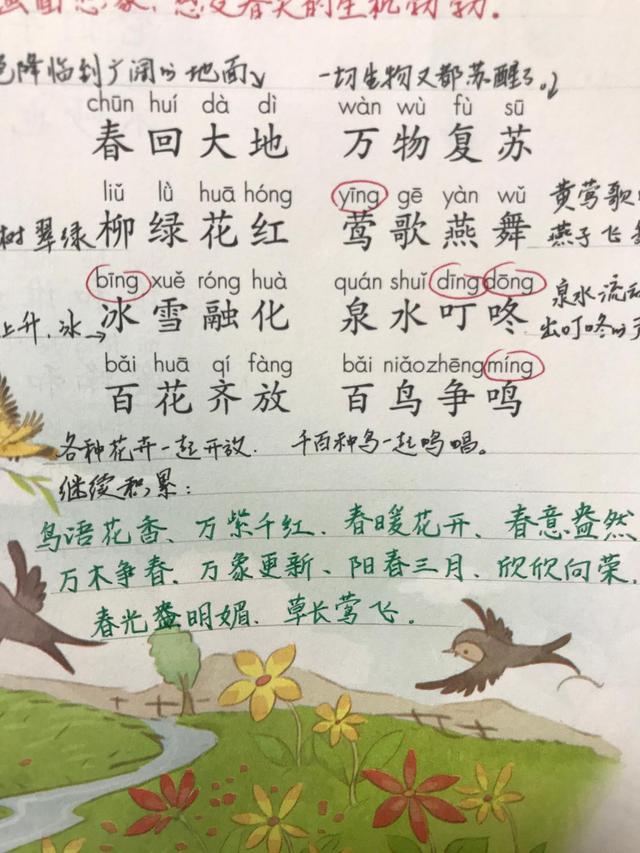 画面想象,感受春天的生机勃勃.
色降临到广阔的地面 一切生物又都苏醒了。
chūn huí dà dì wàn wù fù sū
春回大地 万物复苏
liǔ lǜ huā hóng yīng gē yàn wǔ 黄莺歌
树翠绿 柳绿花红 莺歌燕舞 燕子飞
bīng xuě róng huà quán shuǐ dīng dōng 泉水流动
上升,冰 冰雪融化 泉水叮咚 出叮咚的
bǎi huā qí fàng bǎi niǎo zhēng míng
百花齐放 百鸟争鸣
各种花卉一起开放. 千百种鸟一起鸣唱。
继续积累:
鸟语花香、万紫千红、春暖花开、春意盎然
万木争春、万象更新、阳春三月、欣欣向荣.
春光明媚、草长莺飞.